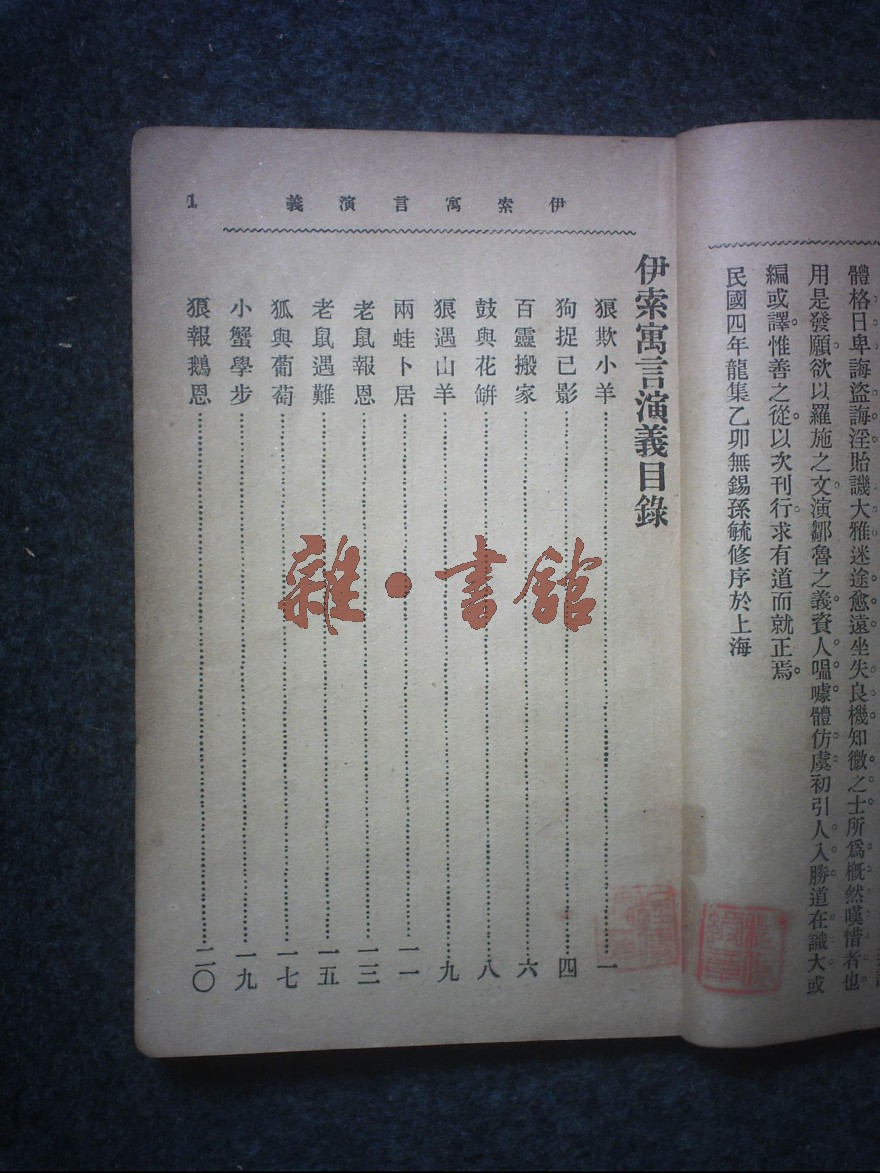 體格日卑誨盜誨淫貽譏大雅迷途愈遠坐失良機知微之士所爲概然嘆惜者也
用是發願欲以羅施之文演鄒魯之義資人嗢噱體仿虞初引人入勝道在識大或
編或譯惟善之從以次刊行求有道而就正焉
民國四年龍集乙卯無錫孫毓修序於上海
伊索寓言演義
1
伊索寓言演義目錄
狼欺小羊 一
狗捉已影 四
百靈搬家 六
鼓與花缾 八
狼遇山羊 九
兩蛙卜居 一一
老鼠報恩 一三
老鼠遇難 一五
狐與葡萄 一七
小蟹學步 一九
狼報鵝恩 二〇
雜·書館